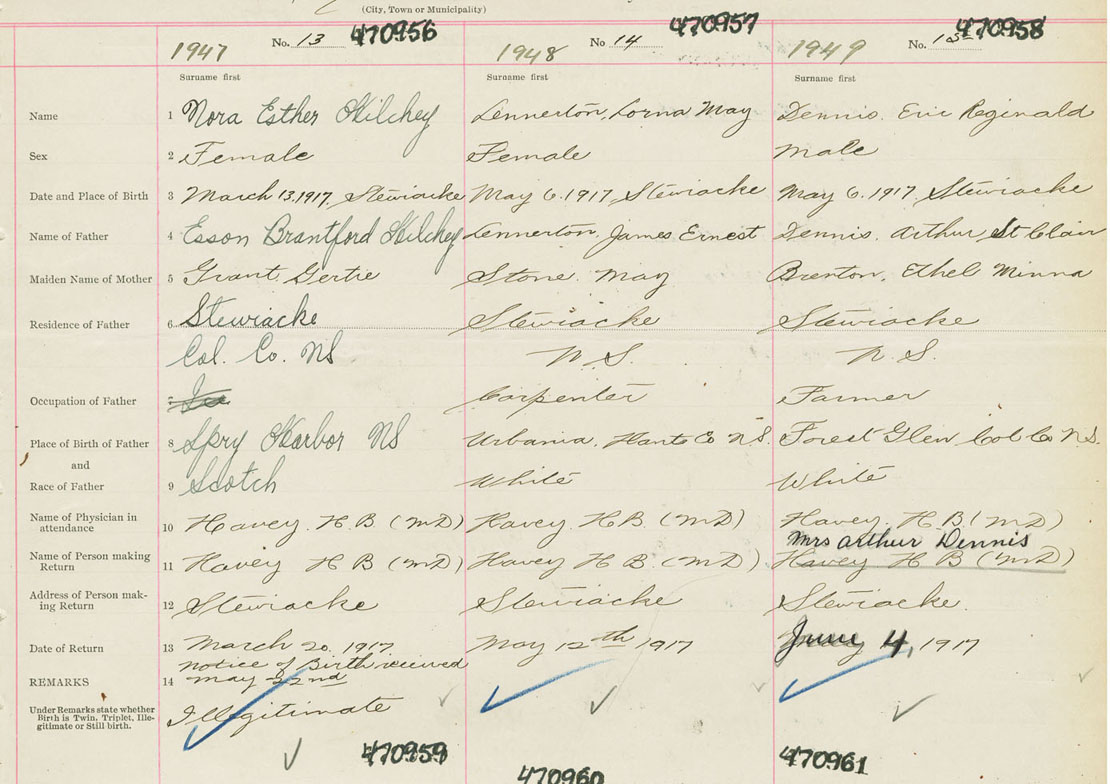 (City, Town or Municipality)
1947 No. 13 470956 1948 No 14 470957 1949 No. 470958
Surname first Surname first Surname first
Name 1 Nora Esther Hilchey Lennerton, Lorna May Dennis. Eric Reginald
Sex 2 Female Female Male
Date and Place of Birth 3 March 13, 1917, Stewiacke May 6. 1917, Stewiacke May 6. 1917, Stewiacke
Name of Father 4 Esson Brantford Hilchey Lennerton, James Ernest Dennis. Arthur St Clair
Maiden Name of Mother 5 Grant, Gertie Stone, May Brenton, Ethel Minna
Residence of Father 6 Stewiacke Stewiacke Stewiacke
Col. Co. NS N. S. N. S.
Occupation of Father Carpenter Farmer
Place of Birth of Father 8 Spry Harbor NS Urbania, Hants Co N.S. Forest Glen Col Co N.S.
and
Race of Father 9 Scotch White White
Name of Physician in
attendance 10 Havey. H. B (MD) Havey. H. B. (MD) Havey. H. B. (MD)
Mrs Arthur Dennis
Name of Person making
Return 11 Havey H. B (MD) Havey H B. (MD) Havey H B (MD)
Address of Person mak-
ing Return 12 Stewiacke Stewiacke Stewiacke.
Date of Return 13 March 20. 1917. May 12th 1917 June 4, 1917
Notice of Birth received
REMARKS 14 May 22nd
Under Remarks state whether
Birth is Twin, Triplet, Ille-
gitimate or Still birth.
Illegitimate
470959 470960 470961